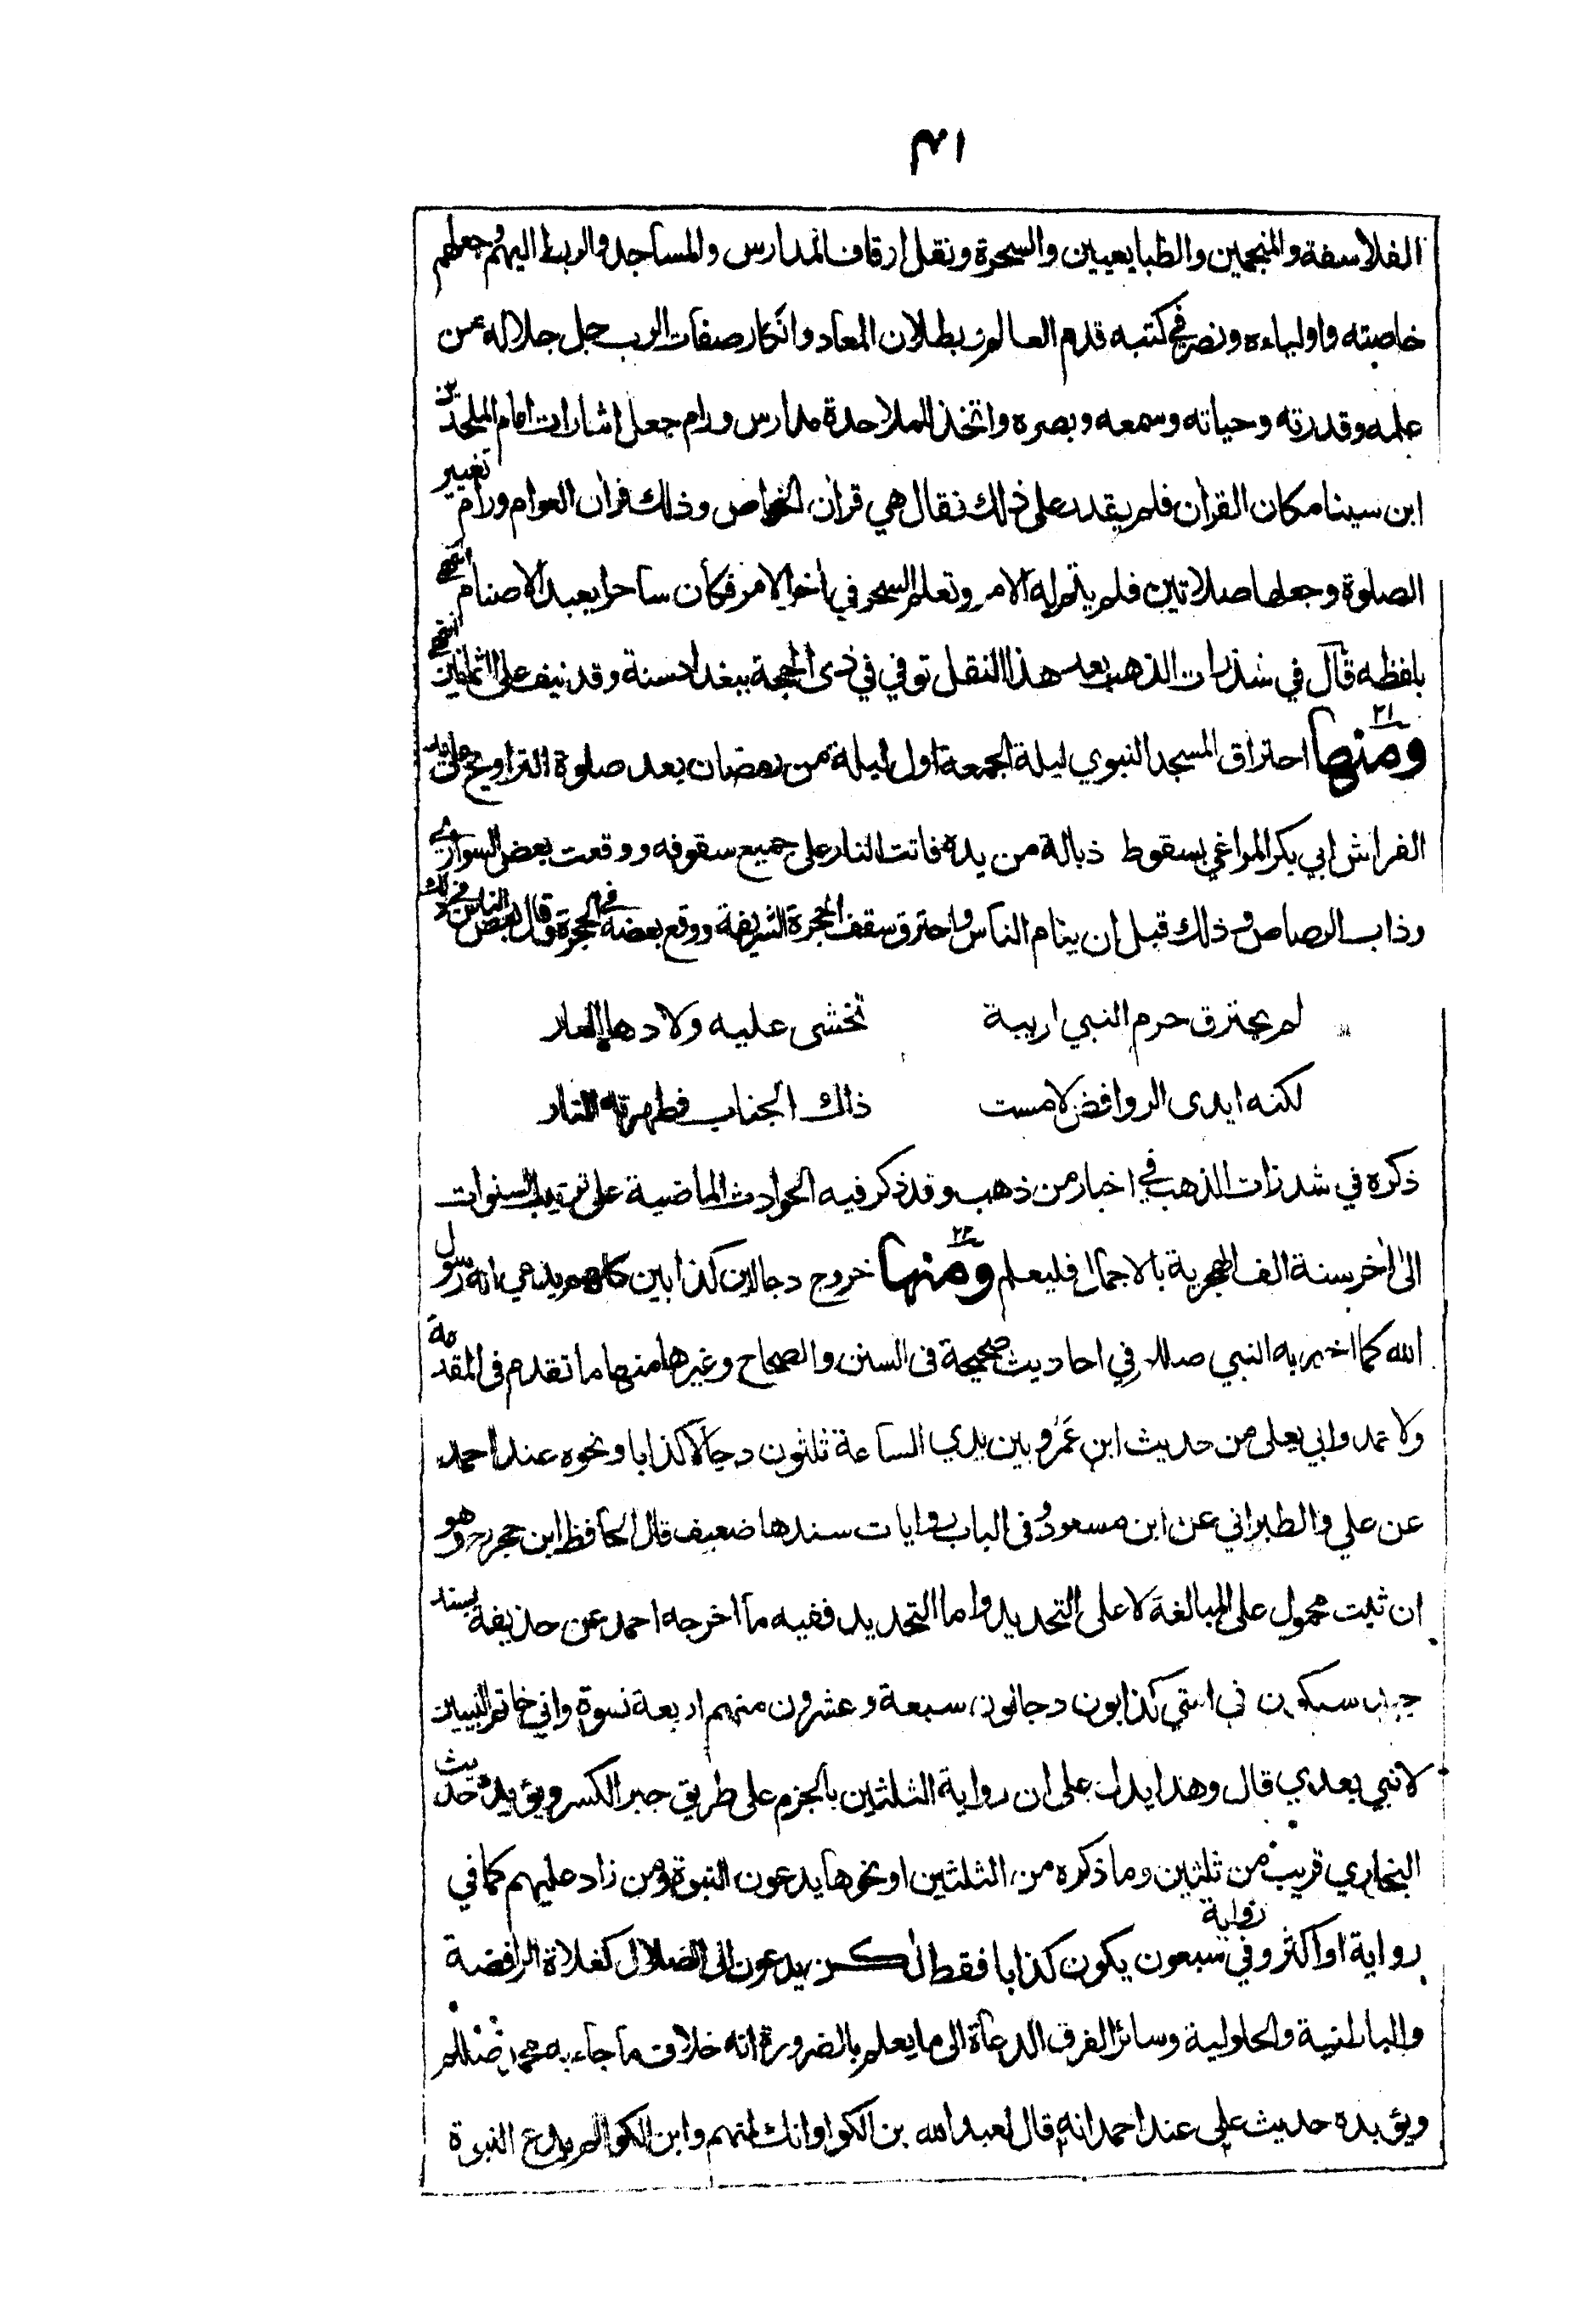 ٣١
الفلاسفة والمنجمين والطبايعيين والسحرة ونقل اوقاف المدارس والمساجد والربط اليهم وجعلهم
خاصته واولياءه ونصر في كتبه قدم العالم وبطلان المعاد وانكار صفات الرب جل جلاله من
علمه وقدرته وحياته وسمعه وبصره واتخذ للملاحدة مدارس ورام جعل اشارات امام الملحدين
ابن سينا مكان القرآن فلم يقدر على ذلك فقال هي قرآن الخواص وذلك قرآن العوام ورام تغيير
الصلوة وجعلها صلاتين فلم يتم له الامر وتعلم السحر في آخر الامر فكان ساحرا يعبد الاصنام انتهى
بلفظه قال في شذرات الذهب بعد هذا النقل توفي في ذى الحجة ببغداد سنة وقد نيف على الثمانين انتهى
٢١
ومنها احتراق المسجد النبوي ليلة الجمعة اول ليلة من رمضان بعد صلوة التراويح على يد
الفراش ابي بكر المراغي بسقوط ذبالة من يده فاتت النار على جميع سقوفه ووقعت بعض السوارى
وذاب الرصاص وذلك قبل ان ينام الناس واحترق سقف الحجرة الشريفة ووقع بعضه في الحجرة وقال بعض الناس في ذلك
لم يحترق حرم النبي لريبة تخشى عليه ولا دهاه العار
لكنه ايدى الروافض لامست ذلك الجناب فطهرته النار
ذكره في شذرات الذهب في اخبار من ذهب وقد ذكر فيه الحوادث الماضية على ترتيب السنوات
الى آخر سنة الف الهجرية بالاجمال فليعلم ٢٢ ومنها خروج دجالين كذابين كلهم يدعي انه رسول
الله كما اخبر به النبي صللم في احاديث صحيحة في السنن والصحاح وغيرها منها ما تقدم في المقدمة
ولاحمد وابي يعلى من حديث ابن عمرو بين يدي الساعة ثلثون دجالا كذابا ونحوه عند احمد
عن علي والطبراني عن ابن مسعود وفى الباب روايات سندها ضعيف قال الحافظ ابن حجر رح وهو
ان ثبت محمول على المبالغة لا على التحديد واما التحديد ففيه ما اخرجه احمد عن حذيفة بسند
جيد سيكون في امتي كذابون دجالون سبعة وعشرون منهم اربعة نسوة واني خاتم النبيين
لا نبي بعدي قال وهذا يدل على ان رواية الثلثين بالجزم على طريق جبر الكسر ويؤيده حديث
البخاري قريب من ثلثين وما ذكره من الثلثين او نحوها يدعون النبوة ومن زاد عليهم كما في
رواية او اكثر وفي رواية سبعون يكون كذابا فقط لكن يدعون الى الضلال كغلاة الرافضة
والباطنية والحلولية وسائر الفرق الدعاة الى ما يعلم بالضرورة انه خلاف ما جاء به محمد صللم
ويؤيده حديث علي عند احمد انه قال لعبد الله بن الكوا وانك لمنهم وابن الكوا لم يدع النبوة